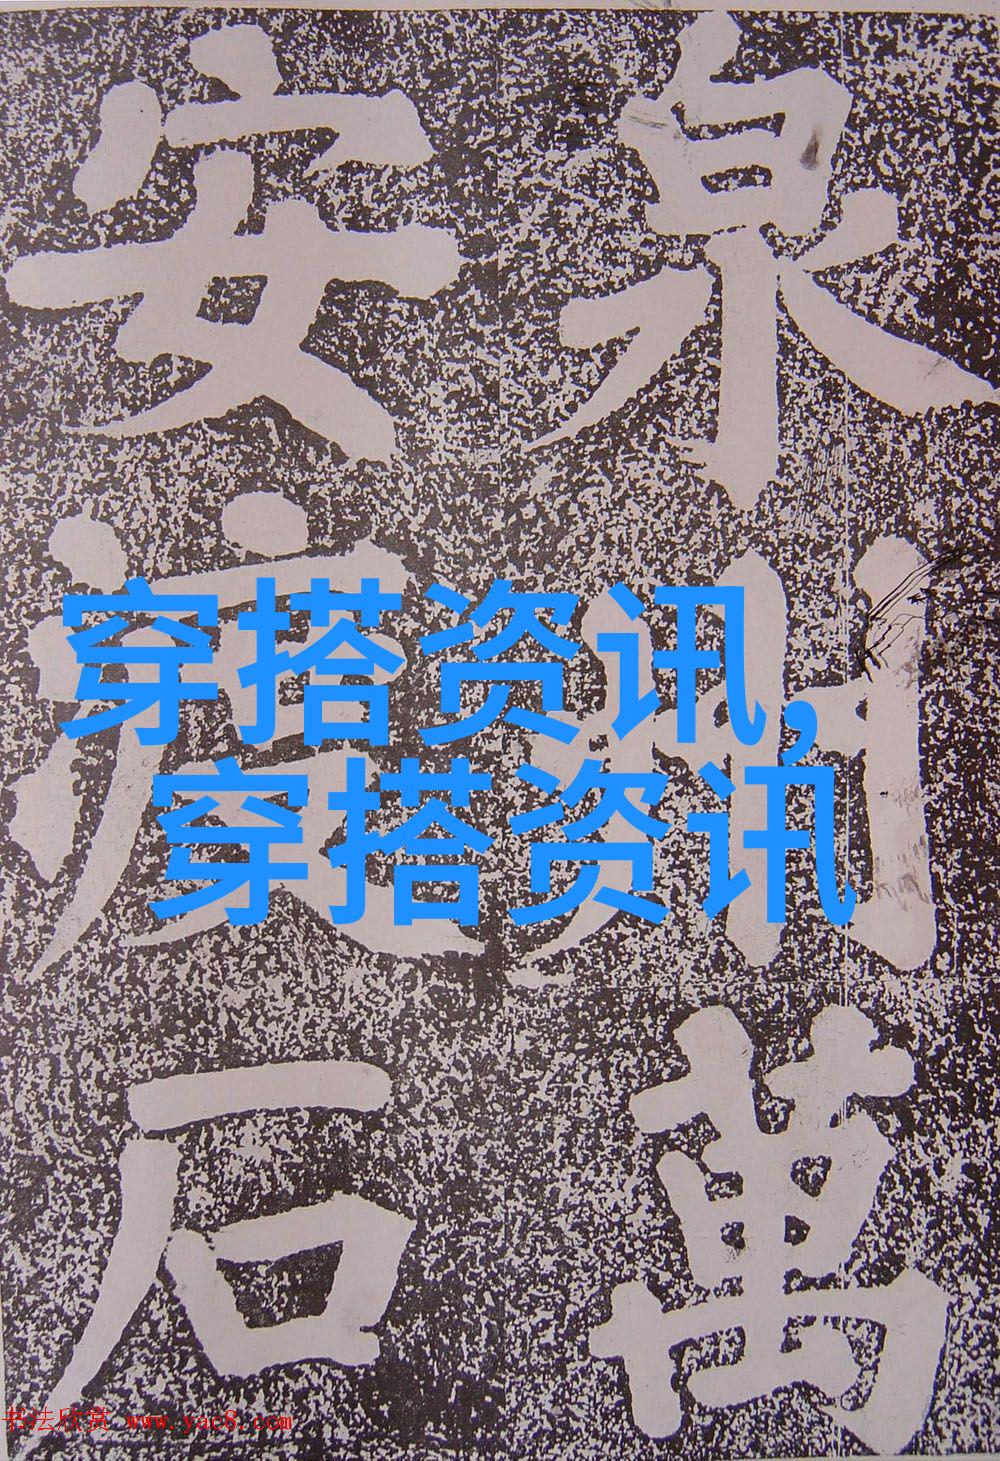 泉州萬
安渡石
穿搭资讯,
穿搭资讯
书法欣赏 www.yac8.com